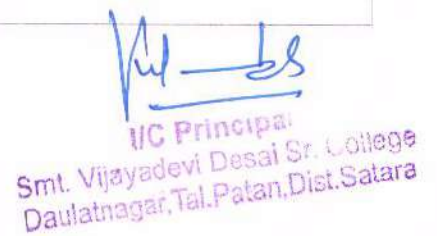 I/C Principal
Smt. Vijayadevi Desai Sr. College
Daulatnagar, Tal. Patan, Dist. Satara